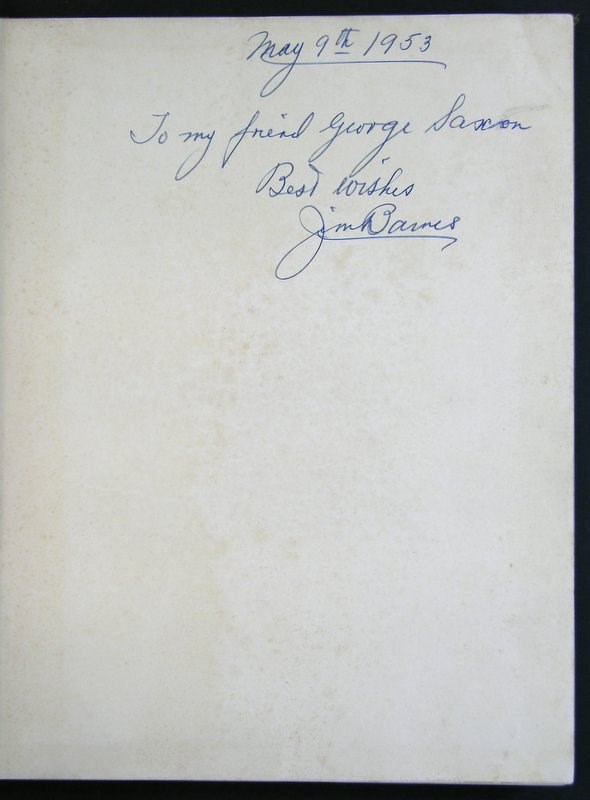 May 9th 1953
To my friend George Saxon
Best wishes
Jim Barnes